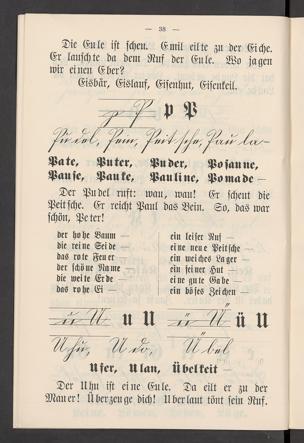 — 38 —
Die Eule ist scheu. Emil eilte zu der Eiche.
Er lauschte da dem Ruf der Eule. Wo jagen
wir einen Eber?
Eisbär, Eislauf, Eisenhut, Eisenkeil.
p P p P
Pudel, Pein, Peitsche, Paula—
Pate, Puter, Puder, Posaune,
Pause, Pauke, Pauline, Pomade—
Der Pudel ruft: wau, wau! Er scheut die
Peitsche. Er reicht Paul das Bein. So, das war
schön, Peter!
der hohe Baum —
die reine Seide —
das rote Feuer
der schöne Name —
die weite Erde
das rohe Ei —
ein leiser Ruf —
eine neue Peitsche —
ein weiches Lager
ein feiner Hut —
eine gute Gabe —
ein böses Zeichen —
u U u U ü Ü ü Ü
Uhu, Udo, Übel
Ufer, Ulan, Übelkeit —
Der Uhu ist eine Eule. Da eilt er zu der
Mauer! Überzeuge dich! Überlaut tönt sein Ruf.